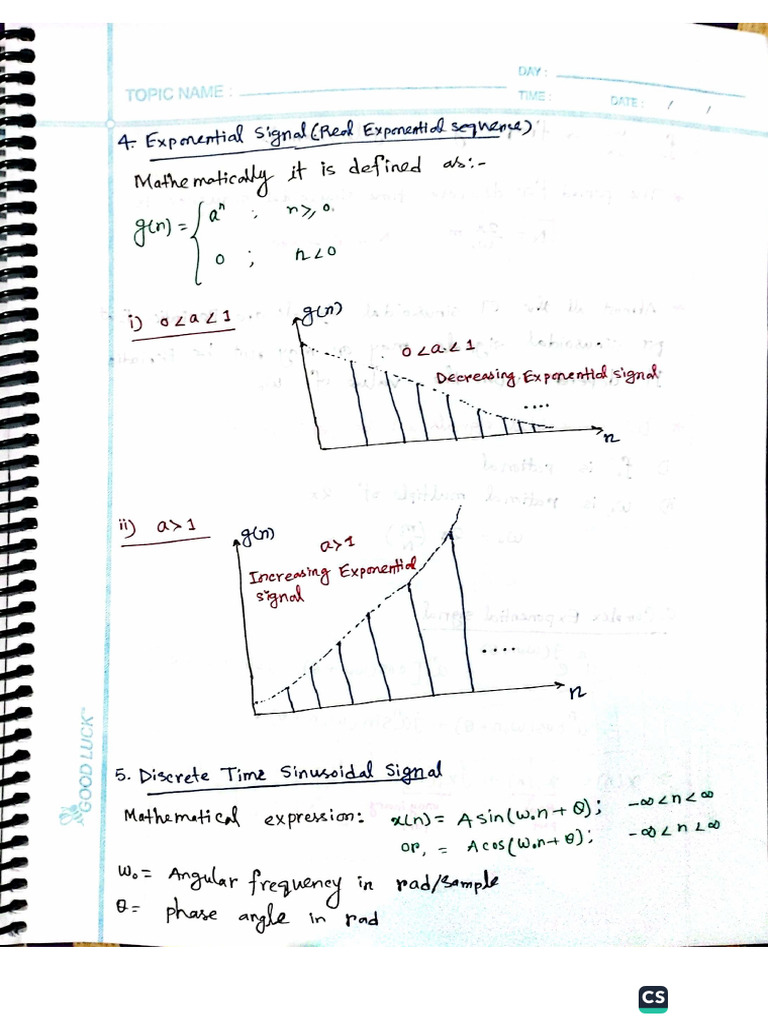 DAY :
TOPIC NAME :
TIME :
DATE : / /
4. Exponential Signal (Real Exponential sequence)
Mathematically it is defined as:-
g(n) = { a^n ; n≥0
0 ; n<0
i) 0<a<1
g(n)
0<a<1
Decreasing Exponential Signal
....
n
ii) a>1
g(n)
a>1
Increasing Exponential
signal
....
n
5. Discrete Time Sinusoidal Signal
Mathematical expression: x(n) = A sin(ω₀n + θ); -∞<n<∞
or, = A cos(ω₀n + θ); -∞<n<∞
ω₀ = Angular frequency in rad/sample
θ = phase angle in rad
GOOD LUCK
CS